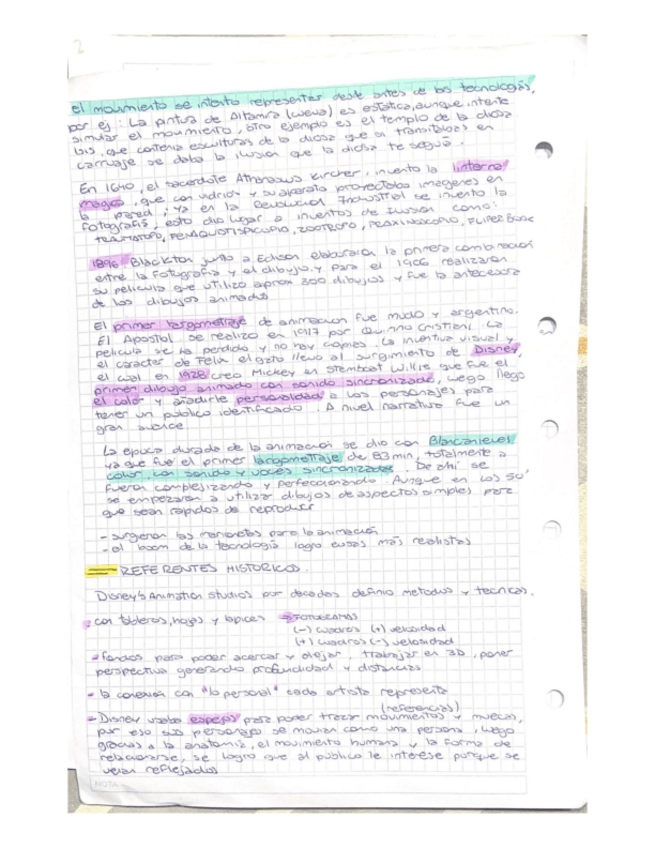 2
El movimiento se intento representar desde antes de las tecnologías,
por ej: La pintura de Altamira (cueva) es estatica, aunque intente
simular el movimiento, otro ejemplo es el templo de la diosa
Isis, que contenia esculturas de la diosa que si transitabas en
carruaje se daba la ilusion que la diosa te seguia.
En 1640, el sacerdote Athanasius Kircher, invento la linterna
magica, que con vidrios y su aparato proyectaba imagenes en
la pared, ya en la Revolucion Industrial se invento la
fotografia, esto dio lugar a inventos de ilusion como:
TRAUMATOPO, FENAQUISTISCOPIO, ZOOTROPO, PRAXINOSCOPIO, FLIPER BOOK
1896 Blackton junto a Edison elaboraron la primera combinacion
entre la Fotografia y el dibujo y para el 1906 realizaron
su pelicula que utilizo aprox 300 dibujos y fue la antecesora
de los dibujos animados
El primer largometraje de animacion fue mudo y argentino.
El Apostol se realizo en 1917 por Quirino Cristiani. La
pelicula se ha perdido y no hay copias. La inventiva visual y
el caracter de Felix el gato llevo al surgimiento de Disney,
el cual en 1928 creo Mickey en Stemboat Willie que fue el
primer dibujo animado con sonido sincronizado, luego llego
el color y añadirle personalidad a los personajes para
tener un publico identificado. A nivel narrativo fue un
gran avance.
La epoca dorada de la animacion se dio con Blancanieves
ya que fue el primer largometraje de 83 min, totalmente a
color, con sonido y voces sincronizadas. De ahi se
fueron complejizando y perfeccionando. Aunque en los 50'
se empezaron a utilizar dibujos de aspectos simples para
que sean rapidos de reproducir
- surgieron las marionetas para la animación
- el boom de la tecnologia logro cosas más realistas
REFERENTES HISTORICOS.
Disney's Animation Studios por decadas definio metodos y tecnicas.
- con tableros, hojas y lapices → FOTOGRAMAS
(-) cuadros (+) velocidad
(+) cuadros (-) velocidad
- fondos para poder acercar y alejar, trabajar en 3D, poner
perspectiva generando profundidad y distancias
- la conexion con "lo personal" cada artista representa
(referencias)
- Disney usaba espejos para poder trazar movimientos y muecas,
por eso sus personajes se movian como una persona, luego
gracias a la anatomia, el movimiento humano y la forma de
relacionarse, se logro que al público le interese porque se
veian reflejados
NOTA